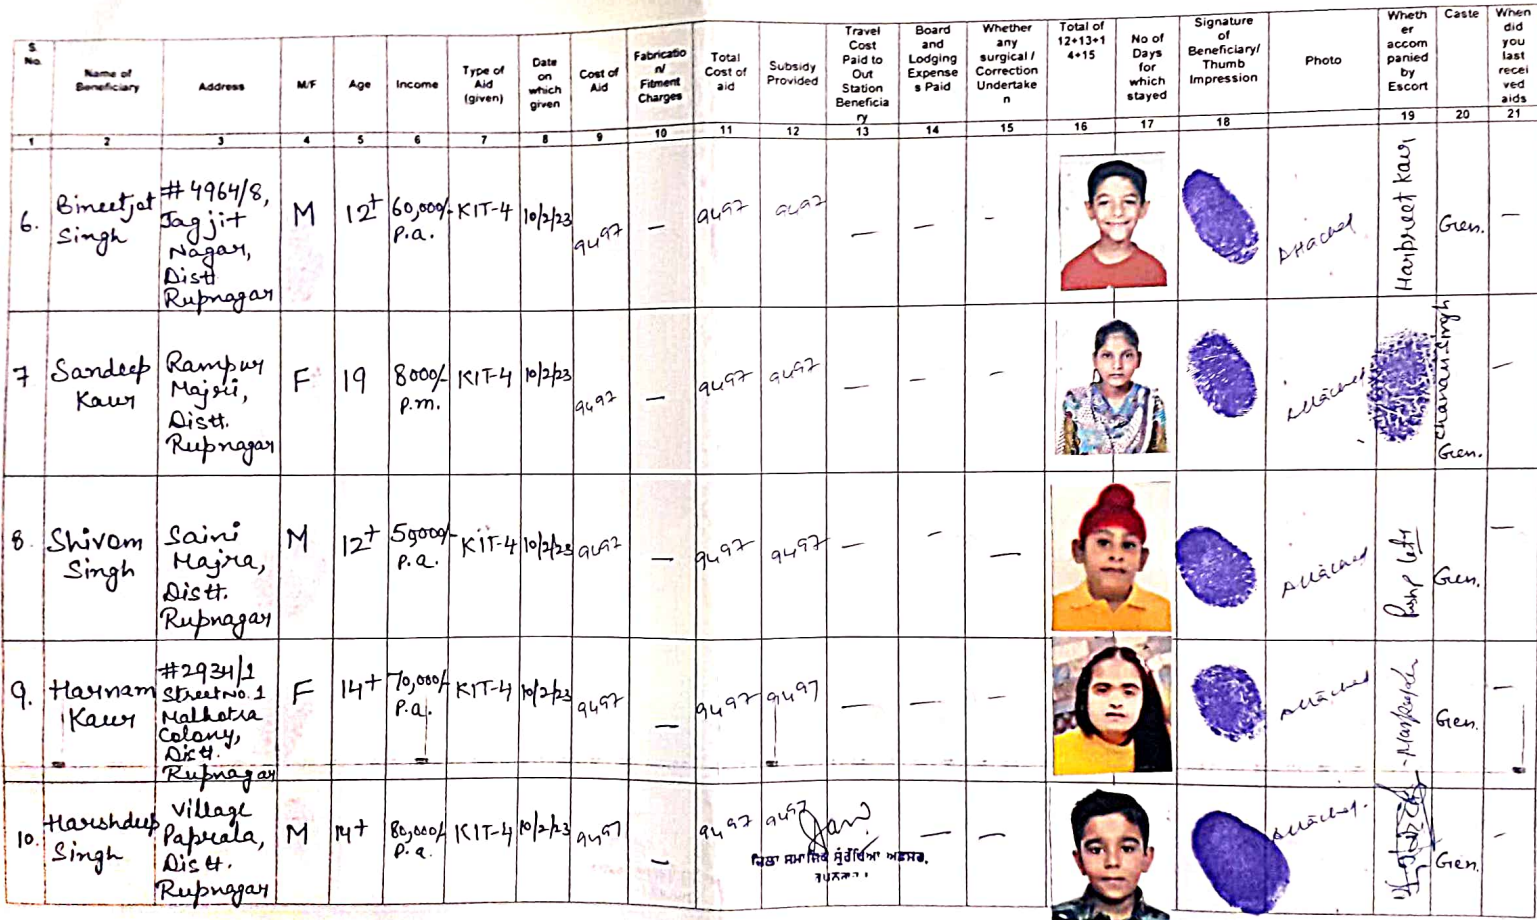 S. No.
Name of Beneficiary
Address
M/F
Age
Income
Type of Aid (given)
Date on which given
Cost of Aid
Fabricatio n/ Fitment Charges
Total Cost of aid
Subsidy Provided
Travel Cost Paid to Out Station Beneficia ry
Board and Lodging Expense s Paid
Whether any surgical / Correction Undertake n
Total of 12+13+1 4+15
No of Days for which stayed
Signature of Beneficiary/ Thumb Impression
Photo
Wheth er accom panied by Escort
Caste
When did you last recei ved aids
1 2 3 4 5 6 7 8 9 10 11 12 13 14 15 16 17 18 19 20 21
6. Bineetjot Singh
#4964/8,
Jagjit
Nagar,
Distt
Rupnagar
M 12+ 60,000/- P.a. KIT-4 10/2/23 9497 — 9497 9497 — — -
Attached
Harpreet Kaur
Gen. —
7 Sandeep Kaur
Rampur
Majri,
Distt.
Rupnagar
F 19 8000/- P.m. KIT-4 10/2/23 9497 — 9497 9497 — — -
Attached
Chanan Singh
Gen. —
8. Shivam Singh
Saini
Majra,
Distt.
Rupnagar
M 12+ 50,000/- P.a. KIT-4 10/2/23 9497 — 9497 9497 — - —
Attached
Pushp lata
Gen. —
9. Harnam Kaur
#2934/1
Street No. 1
Malhotra
Colony,
Distt.
Rupnagar
F 14+ 70,000/- P.a. KIT-4 10/2/23 9497 — 9497 9497 — — -
Attached
Gen. —
10. Harshdeep Singh
Village
Paprala,
Distt.
Rupnagar
M 14+ 80,000/- P.a. KIT-4 10/2/23 9497 — 9497 9497 — —
Attached.
Gen. -
ਜ਼ਿਲਾ ਸਮਾਜਿਕ ਸੁਰੱਖਿਆ ਅਫਸਰ,
ਰੂਪਨਗਰ।